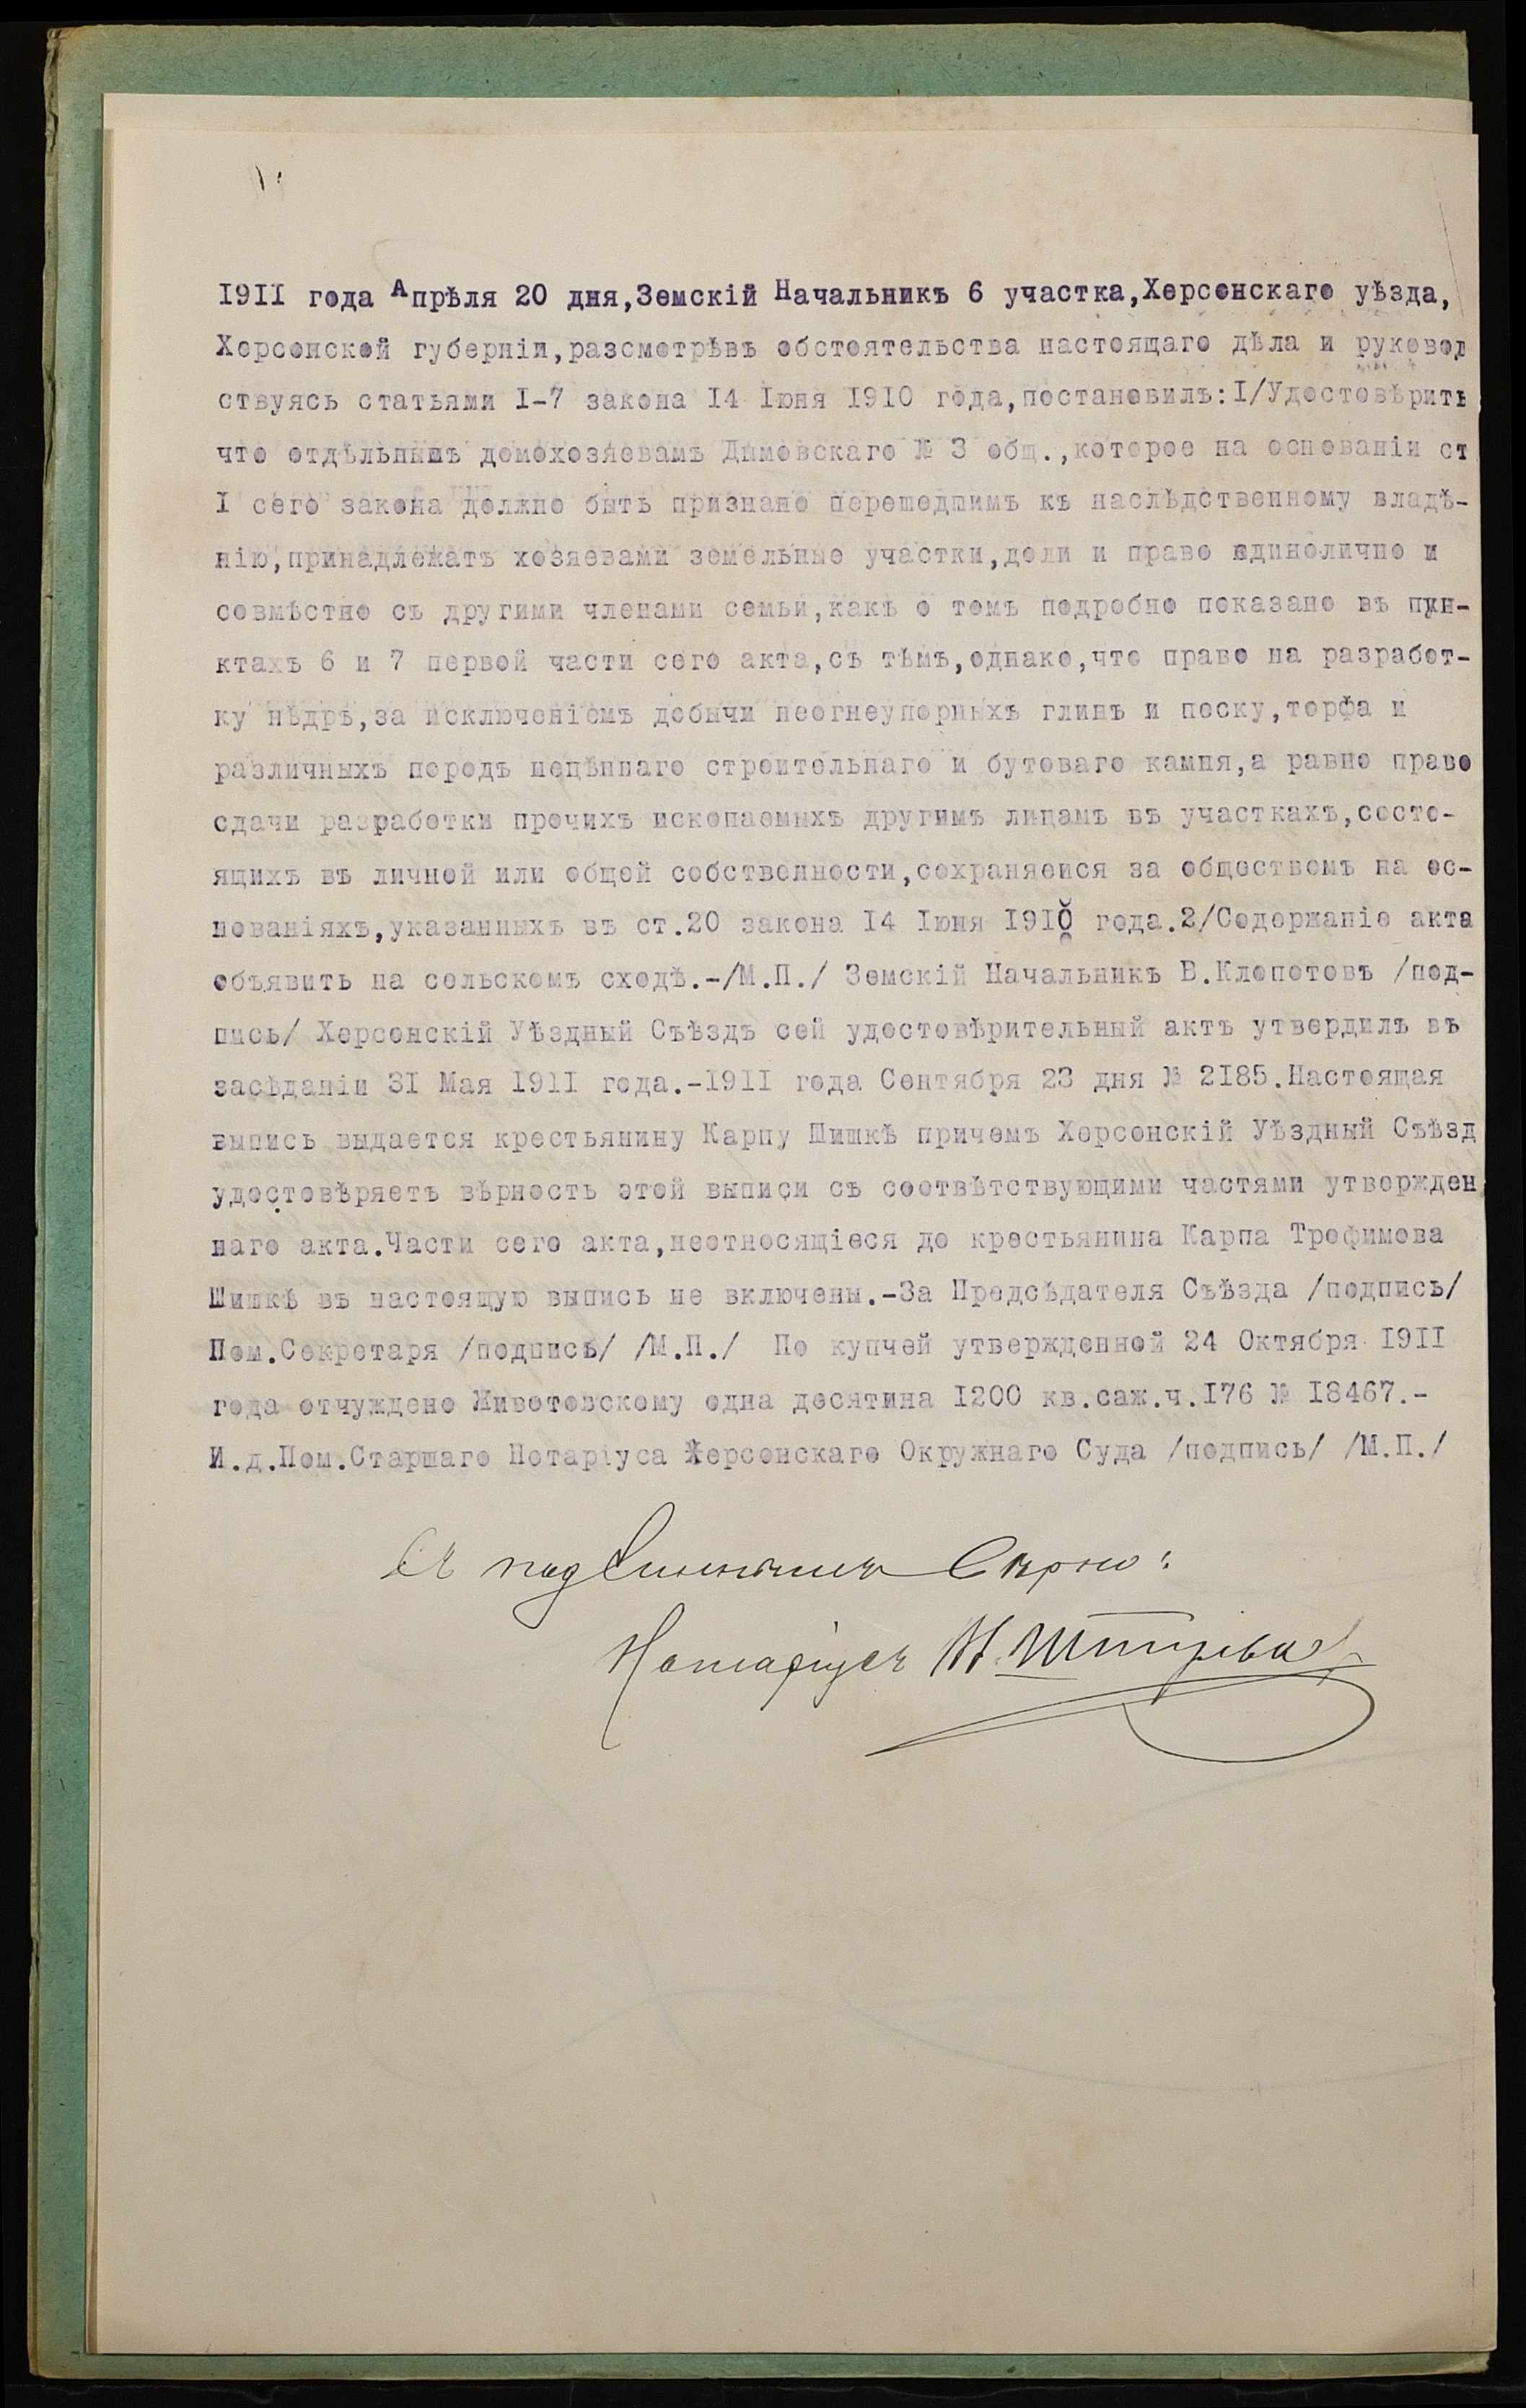 1911 года Апрѣля 20 дня,Земскій Начальникъ 6 участка,Херсонскаго уѣзда,
Херсонской губерніи,разсмотрѣвъ обстоятельства настоящаго дѣла и руковод
ствуясь статьями I-7 закона I4 Іюня I9IO года,постановилъ:I/Удостовѣрить
что отдѣльнымъ домохозяевамъ Дымовскаго № 3 общ.,которое на основаніи ст
I сего закона должно быть признано перешедшимъ къ наслѣдственному владѣ-
нію,принадлежатъ хозяевами земельные участки,доли и право единолично и
совмѣстно съ другими членами семьи,какъ о томъ подробно показано въ пун-
ктахъ 6 и 7 первой части сего акта,съ тѣмъ,однако,что право на разработ-
ку нѣдръ,за исключеніемъ добычи неогнеупорныхъ глинъ и песку,торфа и
различныхъ породъ нецѣннаго строительнаго и бутоваго камня,а равно право
сдачи разработки прочихъ ископаемыхъ другимъ лицамъ въ участкахъ,состо-
ящихъ въ личной или общей собственности,сохраняеися за обществомъ на ос-
нованіяхъ,указанныхъ въ ст.20 закона I4 Іюня 19I0 года.2/Содержаніе акта
объявить на сельскомъ сходѣ.-/М.П./ Земскій Начальникъ В.Клопотовъ /под-
пись/ Херсонскій Уѣздный Съѣздъ сей удостовѣрительный актъ утвердилъ въ
засѣданіи 3I Мая I9II года.-I9II года Сентября 23 дня № 2I85.Настоящая
выпись выдается крестьянину Карпу Шишкѣ причемъ Херсонскій Уѣздный Съѣзд
удостовѣряетъ вѣрность этой выписи съ соотвѣтствующими частями утвержден
наго акта.Части сего акта,неотносящіеся до крестьянина Карпа Трофимова
Шишкѣ въ настоящую выпись не включены.-За Предсѣдателя Съѣзда /подпись/
Пом.Секретаря /подпись/ /М.П./ По купчей утвержденной 24 Октября I9II
года отчуждено Животовскому одна десятина I200 кв.саж.ч.I76 № I8467.-
И.д.Пом.Старшаго Нотаріуса Херсонскаго Окружнаго Суда /подпись/ /М.П./
Съ подлиннымъ вѣрно:
Нотаріусъ